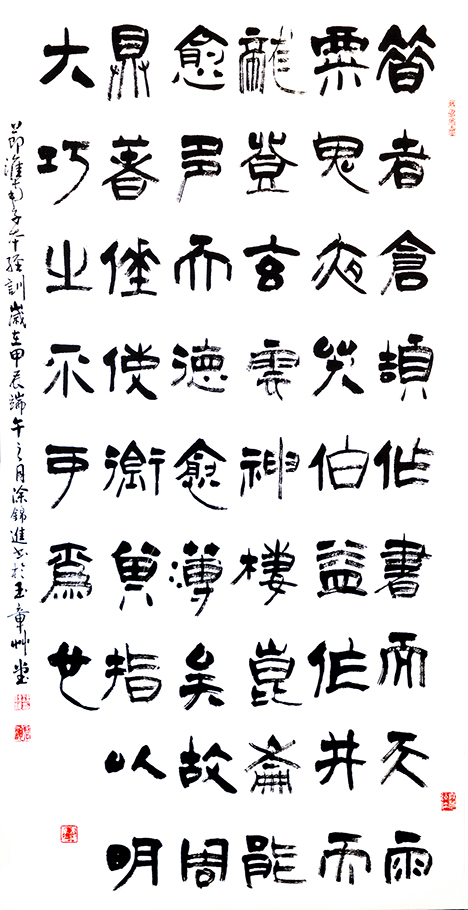 昔者倉頡作書而天雨
粟鬼夜哭伯益作井而
龍登玄雲神棲崑崙能
愈多而德愈薄矣故周
鼎著倕使銜其指以明
大巧之不可爲也
節淮南子本經訓歲在甲辰端午之月涂錦進書於玉章艸堂